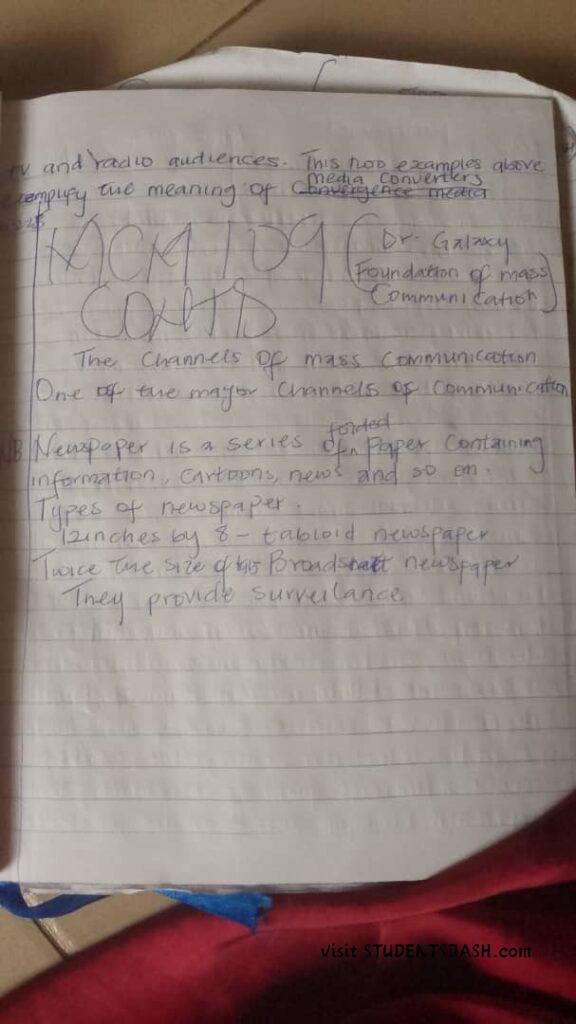 TV and radio audiences. This two examples above
exemplify the meaning of Convergence media
media converters
MCM 109
CONTD
(Dr. Galaxy
Foundation of mass
Communication)
The Channels of mass communication
One of the major Channels of Communication
NB Newspaper is a series of folded Paper Containing
information, Cartoons, news and so on.
Types of newspaper.
12inches by 8 - tabloid newspaper
Twice the size of this Broadsheet newspaper
They provide Surveilance
visit STUDENTSDASH.com